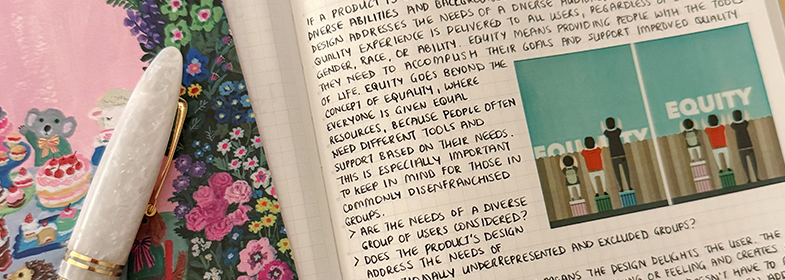 IF A PRODUCT IS
DIVERSE ABILITIES AND BACKGROUNDS
DESIGN ADDRESSES THE NEEDS OF A DIVERSE AUDIENCE
QUALITY EXPERIENCE IS DELIVERED TO ALL USERS, REGARDLESS OF
GENDER, RACE, OR ABILITY. EQUITY MEANS PROVIDING PEOPLE WITH THE TOOLS
THEY NEED TO ACCOMPLISH THEIR GOALS AND SUPPORT IMPROVED QUALITY
OF LIFE. EQUITY GOES BEYOND THE
CONCEPT OF EQUALITY, WHERE
EVERYONE IS GIVEN EQUAL
RESOURCES, BECAUSE PEOPLE OFTEN
NEED DIFFERENT TOOLS AND
SUPPORT BASED ON THEIR NEEDS.
THIS IS ESPECIALLY IMPORTANT
TO KEEP IN MIND FOR THOSE IN
COMMONLY DISENFRANCHISED
GROUPS.
EQUALITY
EQUITY
> ARE THE NEEDS OF A DIVERSE
GROUP OF USERS CONSIDERED?
> DOES THE PRODUCT'S DESIGN
ADDRESS THE NEEDS OF
UNDERREPRESENTED AND EXCLUDED GROUPS?
MEANS THE DESIGN DELIGHTS THE USER. THE
OR FEELING AND CREATES
DOESN'T HAVE TO